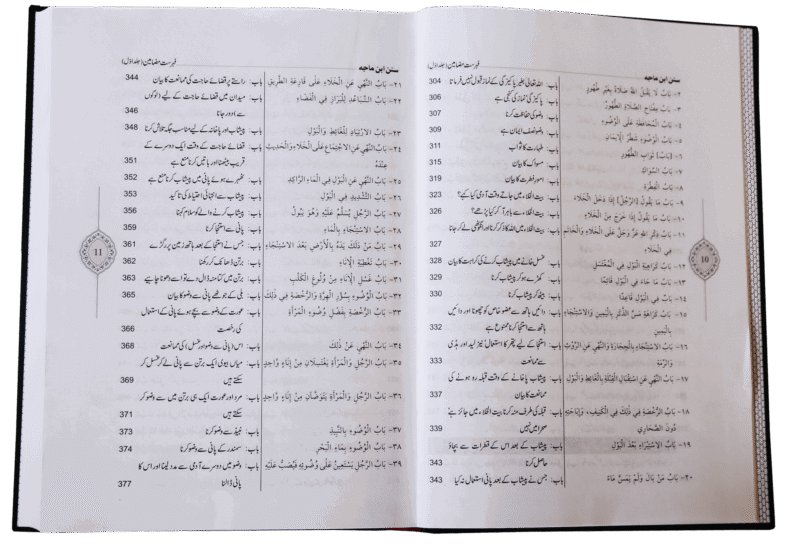 سنن ابن ماجه فہرست مضامین (جلد اول)
٢- بَابُ لَا يَقْبَلُ اللهُ صَلَاةً بِغَيْرِ طُهُورٍ باب: اللہ تعالیٰ بغیر پاکیزگی کے نماز قبول نہیں فرماتا 304
٣- بَابُ مِفْتَاحُ الصَّلَاةِ الطُّهُورُ باب: پاکیزگی نماز کی کنجی ہے 306
٤- بَابُ الْمُحَافَظَةِ عَلَى الْوُضُوءِ باب: وضو کی حفاظت کرنا 307
٥- بَابُ الْوُضُوءِ شَطْرُ الْإِيمَانِ باب: وضو نصف ایمان ہے 309
٦- [بَابُ] ثَوَابِ الطُّهُورِ باب: طہارت کا ثواب 311
٧- بَابُ السِّوَاكِ باب: مسواک کا بیان 315
٨- بَابُ الْفِطْرَةِ باب: امور فطرت کا بیان 319
٩- بَابُ مَا يَقُولُ [الرَّجُلُ] إِذَا دَخَلَ الْخَلَاءَ باب: بیت الخلاء میں جاتے وقت آدمی کیا کہے؟ 323
١٠- بَابُ مَا يَقُولُ إِذَا خَرَجَ مِنَ الْخَلَاءِ باب: بیت الخلاء سے باہر آ کر کیا پڑھے؟ 326
١١- بَابُ ذِكْرِ اللهِ عَزَّ وَجَلَّ عَلَى الْخَلَاءِ وَالْخَاتَمِ باب: بیت الخلاء میں اللہ کا ذکر کرنا اور انگوٹھی لے کر جانا
فِي الْخَلَاءِ 327
١٢- بَابُ كَرَاهِيَةِ الْبَوْلِ فِي الْمُغْتَسَلِ باب: غسل خانے میں پیشاب کرنے کی کراہت کا بیان 328
١٣- بَابُ مَا جَاءَ فِي الْبَوْلِ قَائِمًا باب: کھڑے ہو کر پیشاب کرنا 329
١٤- بَابٌ فِي الْبَوْلِ قَاعِدًا باب: بیٹھ کر پیشاب کرنا 330
١٥- بَابُ كَرَاهَةِ مَسِّ الذَّكَرِ بِالْيَمِينِ وَالِاسْتِنْجَاءِ باب: دائیں ہاتھ سے عضو خاص کو چھونا اور دائیں
بِالْيَمِينِ ہاتھ سے استنجا کرنا ممنوع ہے 331
١٦- بَابُ الِاسْتِنْجَاءِ بِالْحِجَارَةِ وَالنَّهْيِ عَنِ الرَّوْثِ باب: استنجا کے لیے پتھر کا استعمال نیز لید اور ہڈی
وَالرِّمَّةِ سے ممانعت 333
١٧- بَابُ النَّهْيِ عَنِ اسْتِقْبَالِ الْقِبْلَةِ بِالْغَائِطِ وَالْبَوْلِ باب: پیشاب پاخانے کے وقت قبلہ رو ہونے کی
ممانعت کا بیان 337
١٨- بَابُ الرُّخْصَةِ فِي ذَلِكَ فِي الْكَنِيفِ، وَإِبَاحَتِهِ باب: قبلہ کی طرف منہ کرنا بیت الخلاء میں جائز ہے
دُونَ الصَّحَارِي صحرا میں نہیں 339
١٩- بَابُ الِاسْتِبْرَاءِ بَعْدَ الْبَوْلِ باب: پیشاب کے بعد اس کے قطرات سے بچاؤ
حاصل کرنا 343
٢٠- بَابُ مَنْ بَالَ وَلَمْ يَمَسَّ مَاءً باب: جس نے پیشاب کے بعد پانی استعمال نہ کیا 343
10
سنن ابن ماجه فہرست مضامین (جلد اول)
٢١- بَابُ النَّهْيِ عَنِ الْخَلَاءِ عَلَى قَارِعَةِ الطَّرِيقِ باب: راستے پر قضائے حاجت کی ممانعت کا بیان 344
٢٢- بَابُ التَّبَاعُدِ لِلْبَرَازِ فِي الْفَضَاءِ باب: میدان میں قضائے حاجت کے لیے (لوگوں
سے) دور جانا 346
٢٣- بَابُ الِارْتِيَادِ لِلْغَائِطِ وَالْبَوْلِ باب: پیشاب اور پاخانہ کے لیے مناسب جگہ تلاش کرنا 348
٢٤- بَابُ النَّهْيِ عَنِ الِاجْتِمَاعِ عَلَى الْخَلَاءِ وَالْحَدِيثِ باب: قضائے حاجت کے وقت ایک دوسرے کے
عِنْدَهُ قریب بیٹھنا اور باتیں کرنا منع ہے 351
٢٥- بَابُ النَّهْيِ عَنِ الْبَوْلِ فِي الْمَاءِ الرَّاكِدِ باب: ٹھہرے ہوئے پانی میں پیشاب کرنا منع ہے 352
٢٦- بَابُ التَّشْدِيدِ فِي الْبَوْلِ باب: پیشاب سے انتہائی احتیاط کی تاکید 353
٢٧- بَابُ الرَّجُلِ يُسَلَّمُ عَلَيْهِ وَهُوَ يَبُولُ باب: پیشاب کرنے والے کو سلام کہنا 356
٢٨- بَابُ الِاسْتِنْجَاءِ بِالْمَاءِ باب: پانی سے استنجا کرنا 359
٢٩- بَابُ مَنْ دَلَكَ يَدَهُ بِالْأَرْضِ بَعْدَ الِاسْتِنْجَاءِ باب: جس نے استنجا کے بعد ہاتھ زمین پر رگڑے 361
٣٠- بَابُ تَغْطِيَةِ الْإِنَاءِ باب: برتن ڈھانک کر رکھنا 362
٣١- بَابُ غَسْلِ الْإِنَاءِ مِنْ وُلُوغِ الْكَلْبِ باب: برتن میں کتا منہ ڈال دے تو اسے دھونا چاہیے 363
٣٢- بَابُ الْوُضُوءِ بِسُؤْرِ الْهِرَّةِ وَالرُّخْصَةِ فِي ذَلِكَ باب: بلی کے جھوٹے پانی سے وضو کا بیان 365
٣٣- بَابُ الرُّخْصَةِ بِفَضْلِ وَضُوءِ الْمَرْأَةِ باب: عورت کے وضو سے بچے ہوئے پانی کے استعمال
کی رخصت 366
٣٤- بَابُ النَّهْيِ عَنْ ذَلِكَ باب: اس (پانی سے وضو اور غسل) کی ممانعت 368
٣٥- بَابُ الرَّجُلِ وَالْمَرْأَةِ يَغْتَسِلَانِ مِنْ إِنَاءٍ وَاحِدٍ باب: میاں بیوی ایک برتن سے پانی لے کر غسل کر
سکتے ہیں 369
٣٦- بَابُ الرَّجُلِ وَالْمَرْأَةِ يَتَوَضَّآنِ مِنْ إِنَاءٍ وَاحِدٍ باب: مرد اور عورت ایک ہی برتن میں سے وضو کر
سکتے ہیں 371
٣٧- بَابُ الْوُضُوءِ بِالنَّبِيذِ باب: نبیذ سے وضو کرنا 373
٣٨- بَابُ الْوُضُوءِ بِمَاءِ الْبَحْرِ باب: سمندر کے پانی سے وضو کرنا 374
٣٩- بَابُ الرَّجُلِ يَسْتَعِينُ عَلَى وُضُوئِهِ فَيُصَبُّ عَلَيْهِ باب: وضو میں دوسرے آدمی سے مدد لینا اور اس کا
پانی ڈالنا 377
11